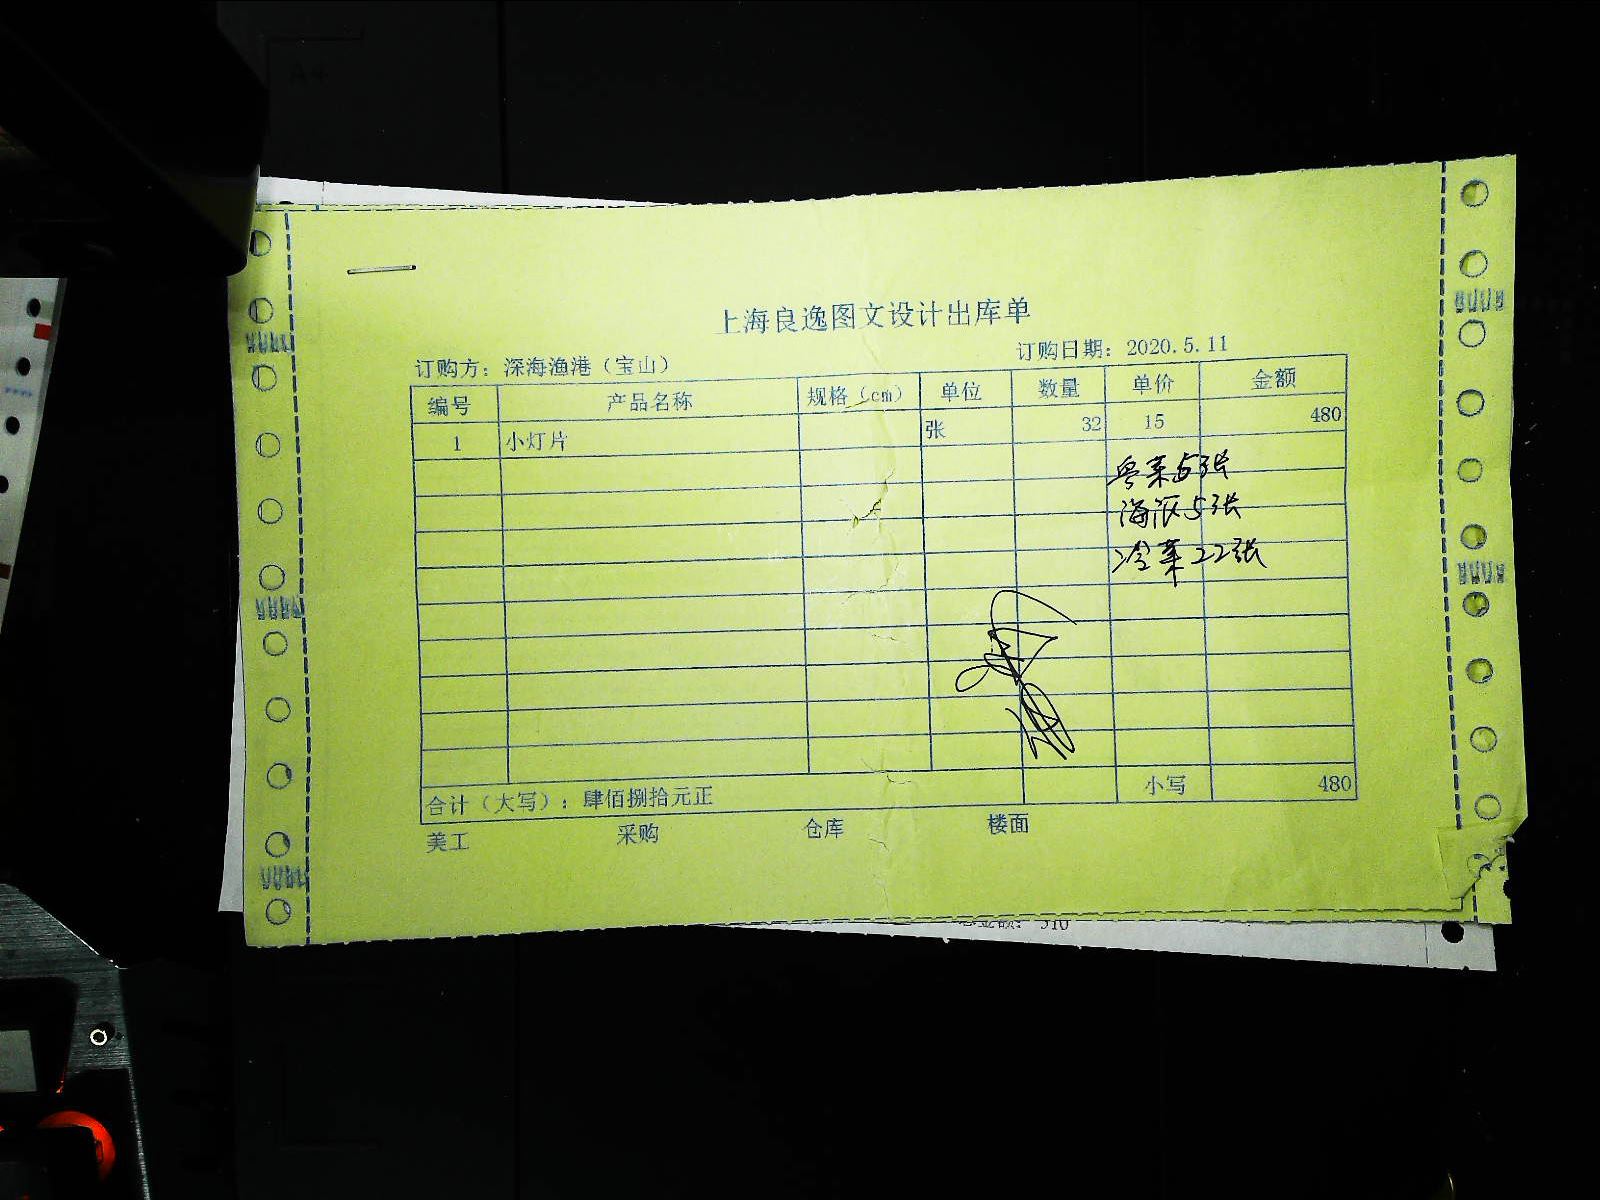 A4
上海良逸图文设计出库单
订购方：深海渔港（宝山） 订购日期：2020.5.11
编号 产品名称 规格（cm） 单位 数量 单价 金额
1 小灯片 张 32 15 480
粤菜5张
海派5张
冷菜22张
合计（大写）：肆佰捌拾元正 小写 480
美工 采购 仓库 楼面
总金额：510